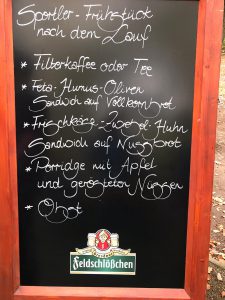 Sportler-Frühstück
nach dem Lauf
* Filterkaffee oder Tee
* Feta-Humus-Oliven
Sandwich auf Vollkornbrot
* Frischkäse-Zwiebel-Huhn
Sandwich auf Nussbrot
* Porridge mit Apfel
und gerösteten Nüssen
* Obst
Feldschlößchen